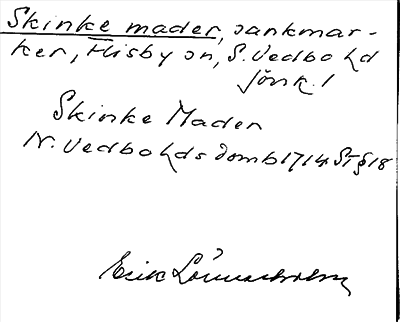 Skinke mader, sankmar-
ker, Flisby sn, S. Vedbo hd
Jönk. l
Skinke Maden
N. Vedbo hds domb 1714 ST § 18
Erik Lönnerholm